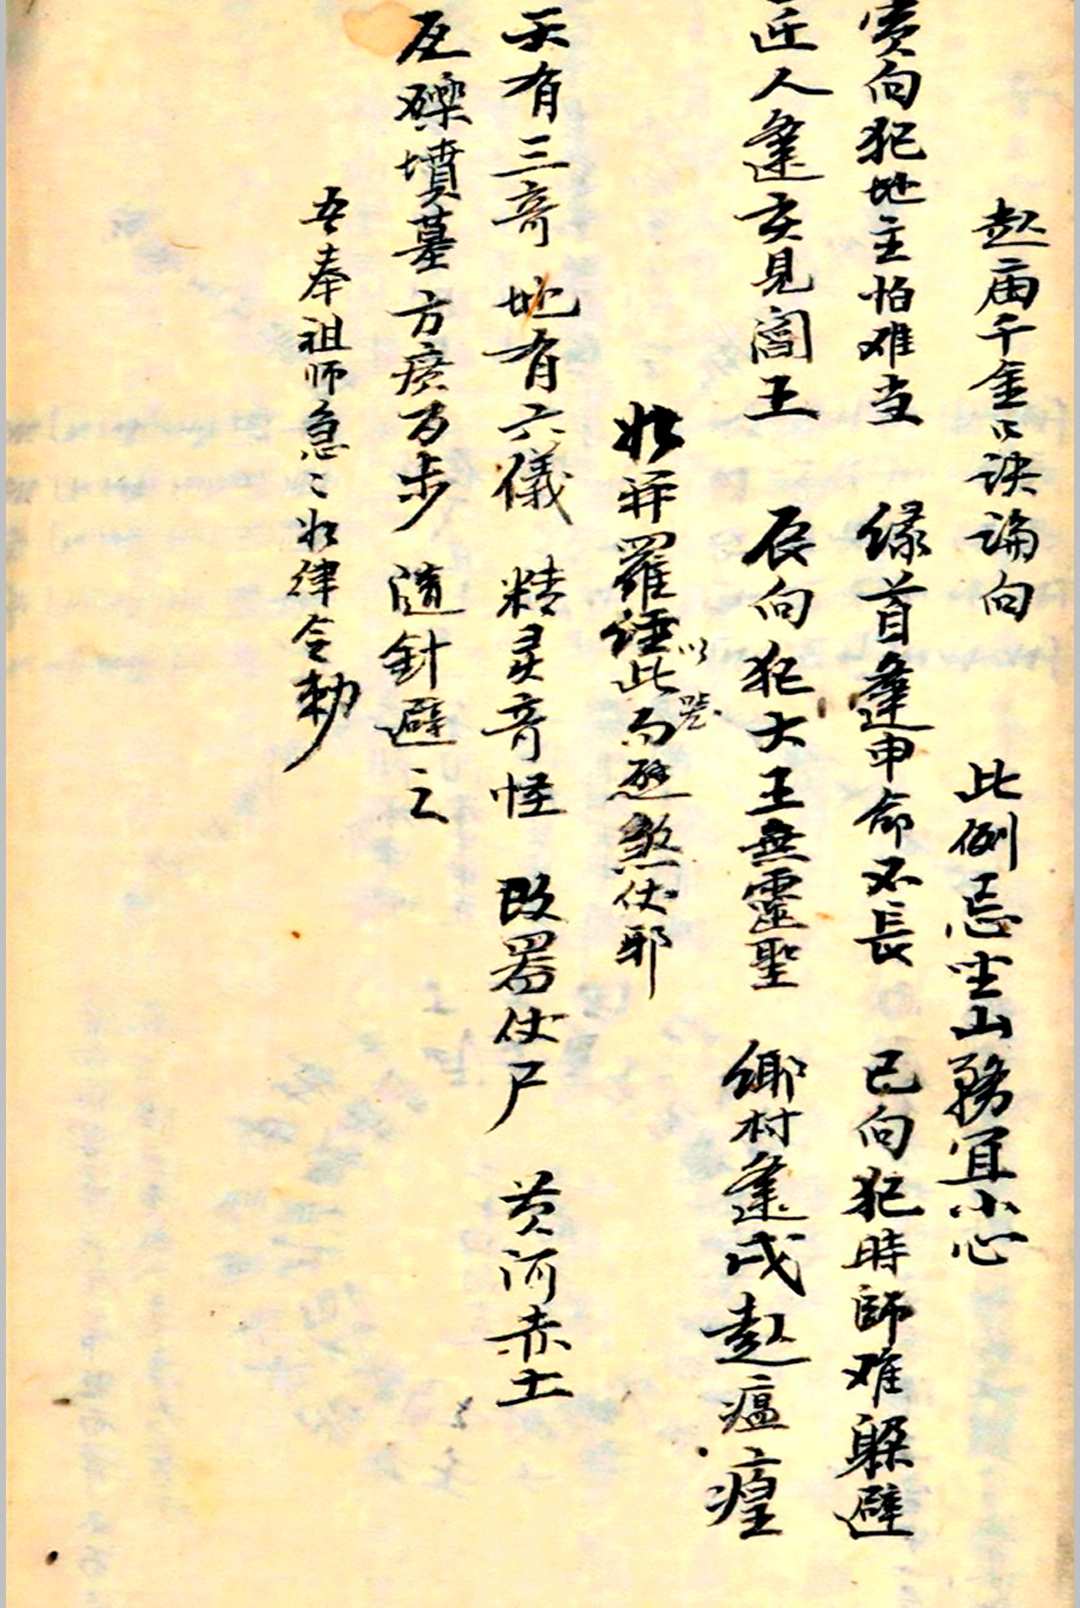 起庙千金口訣論向 此例忌坐山務宜小心
寅向犯地主怕难当 缘首逢申命不長 已向犯時師难躲避
匠人逢亥見閻王 辰向犯大王無靈聖 鄉村逢戌起瘟瘟
羅經此而避煞伏邪
天有三奇 地有六儀 精灵奇怪 故器伏尸 黄河赤土
瓦礫墳墓 方廣百步 隨針避之
吾奉祖師急〻如律令勅